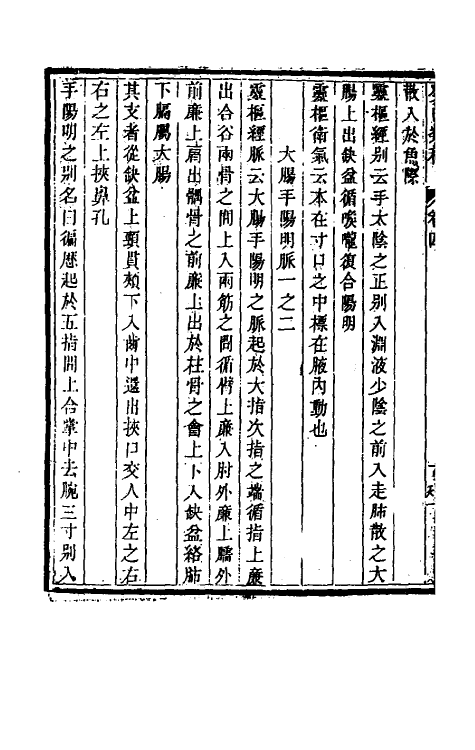 散入於魚際
靈樞經別云手太陰之正別入淵液少陰之前入走肺散之大
腸上出缺盆循喉嚨復合陽明
靈樞衛氣云本在寸口之中標在腋內動也
大腸手陽明脈一之二
靈樞經脈云大腸手陽明之脈起於大指次指之端循指上廉
出合谷兩骨之間上入兩筋之間循臂上廉入肘外廉上臑外
前廉上肩出髃骨之前廉上出於柱骨之會上下入缺盆絡肺
下膈屬大腸
其支者從缺盆上頸貫頰下入齒中還出挾口交人中左之右
右之左上挾鼻孔
手陽明之別名曰徧歷起於五指間上合掌中去腕三寸別入